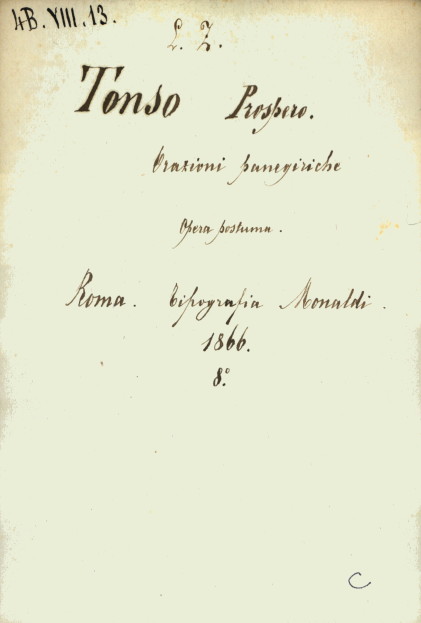 4B.VIII.13.
L. Z.
Tonso Prospero.
Orazioni panegiriche
Opera postuma.
Roma. Tipografia Monaldi.
1866.
8°.
C